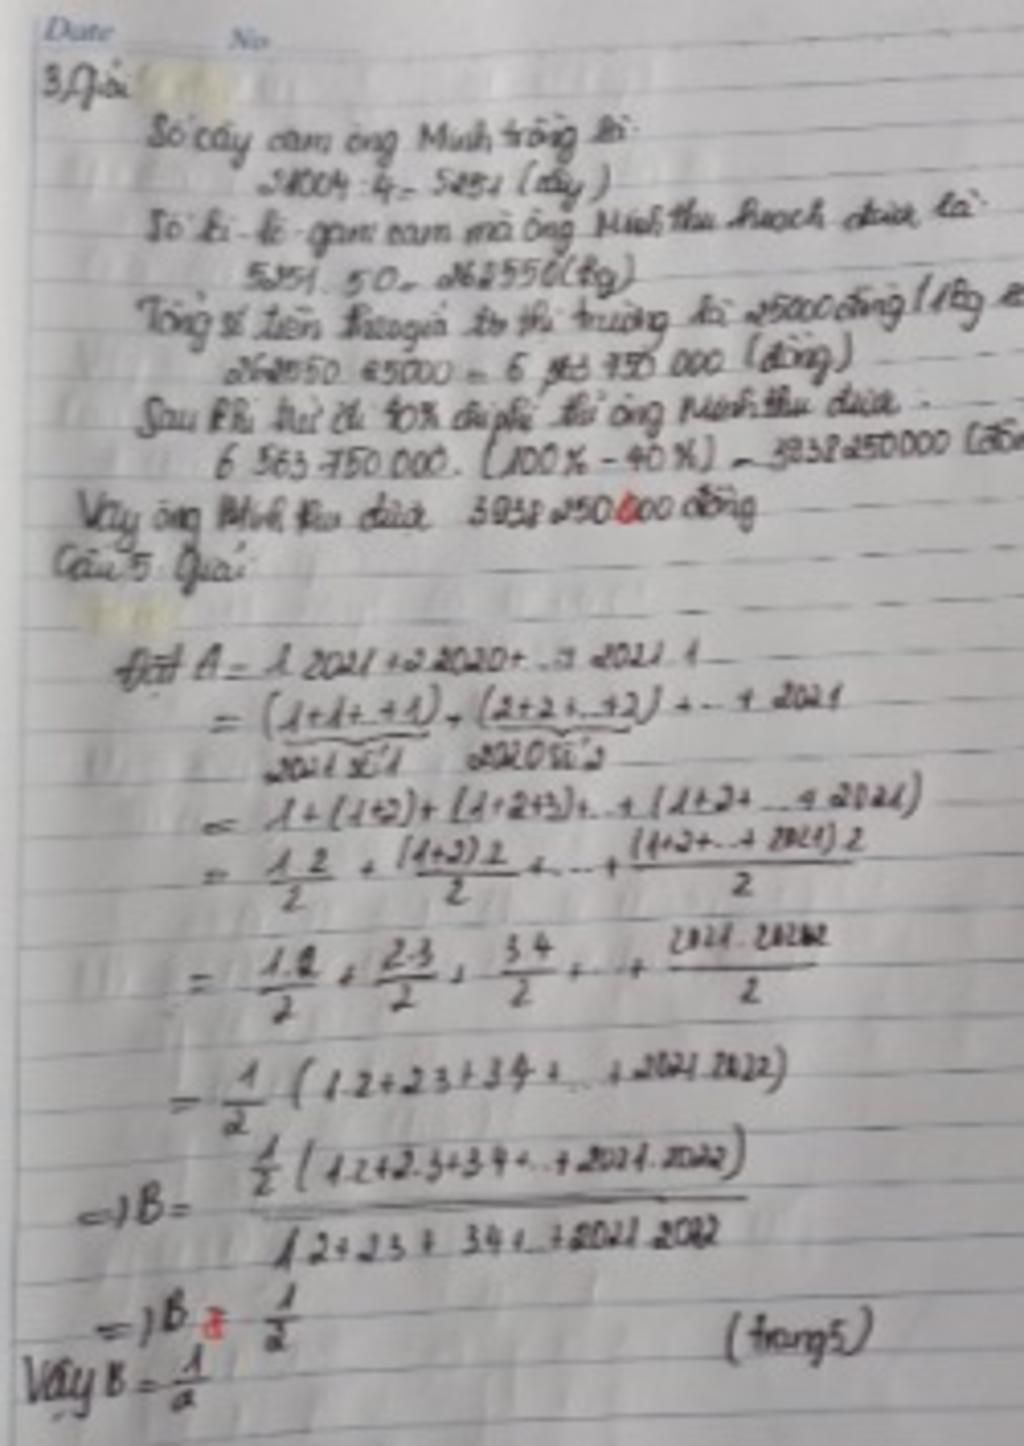 Date No
3, Giải
Số cây cam ông Minh trồng là:
21004 : 4 = 5251 (cây)
Số ki-lô-gam cam mà ông Minh thu hoạch được là:
5251 . 50 = 262550 (kg)
Tổng số tiền theo giá thị trường là 25000 đồng / 1kg
262550 . 25000 = 6 563 750 000 (đồng)
Sau khi trừ đi 40% chi phí thì ông Minh thu được
6 563 750 000 . (100% - 40%) = 3938250000
Vậy ông Minh thu được 3938250000 đồng
Câu 5 Giải:
Đặt A = 1.2021 + 2.2020 + ... + 2021.1
= (1+1+...+1) + (2+2+...+2) + ... + 2021
2021 số 1 2020 số 2
= 1+(1+2)+(1+2+3)+...+(1+2+...+2021)
= 1.2/2 + (1+2).2/2 + ... + (1+2+...+2021).2/2
= 1.2/2 + 2.3/2 + 3.4/2 + ... + 2021.2022/2
= 1/2 (1.2+2.3+3.4+...+2021.2022)
=> B = 1/2 (1.2+2.3+3.4+...+2021.2022) / 1.2+2.3+3.4+...+2021.2022
=> B = 1/2
Vậy B = 1/2
(trang 5)